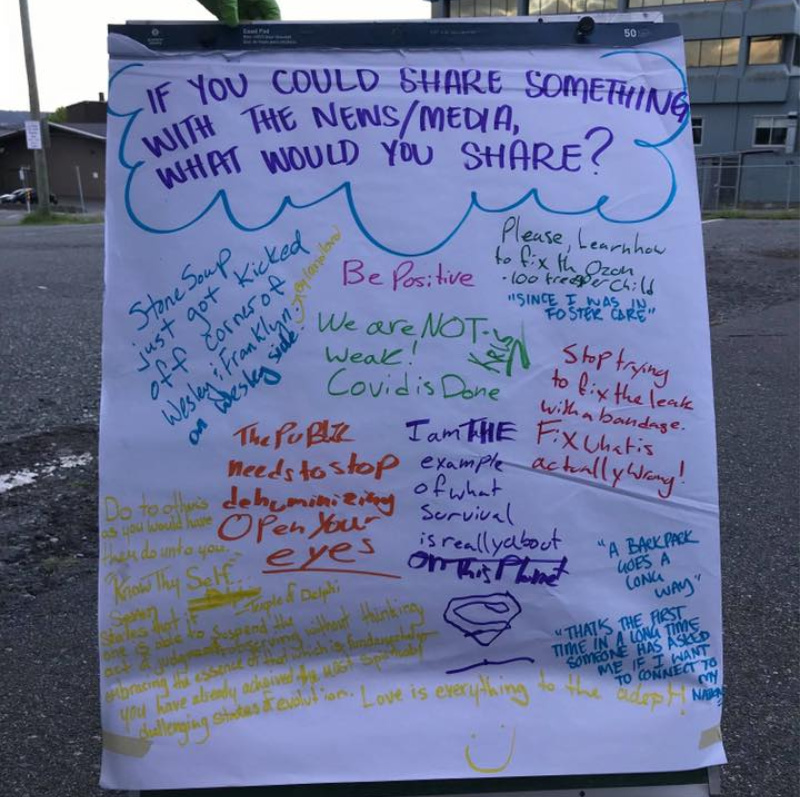 50
IF YOU COULD SHARE SOMETHING
WITH THE NEWS/MEDIA,
WHAT WOULD YOU SHARE?
Stone Soup
just got kicked
off corner of
Wesley & Franklyn
on Wesley side.
Be Positive
Please, Learn how
to fix th Ozon
100 trees per Child
"SINCE I WAS IN
FOSTER CARE"
We are NOT
weak!
Covid is Done
Stop trying
to fix the leak
with a bandage.
Fix what is
actually wrong!
The PUBLIC
needs to stop
dehuminizing
Open Your
eyes
I am THE
example
of what
Survival
is really about
on this Planet
Do to others
as you would have
them do unto you.
Know Thy Self
Temple of Delphi
states that if
one is able to suspend the
act of judgment, observing without thinking
embracing the essence of that which is fundamental
you have already achieved the most spiritual
challenging status of evolution. Love is everything to the adept!
"A BACKPACK
GOES A
LONG
WAY"
"THATS THE FIRST
TIME IN A LONG TIME
SOMEONE HAS ASKED
ME IF I WANT
TO CONNECT TO
MY
NATION